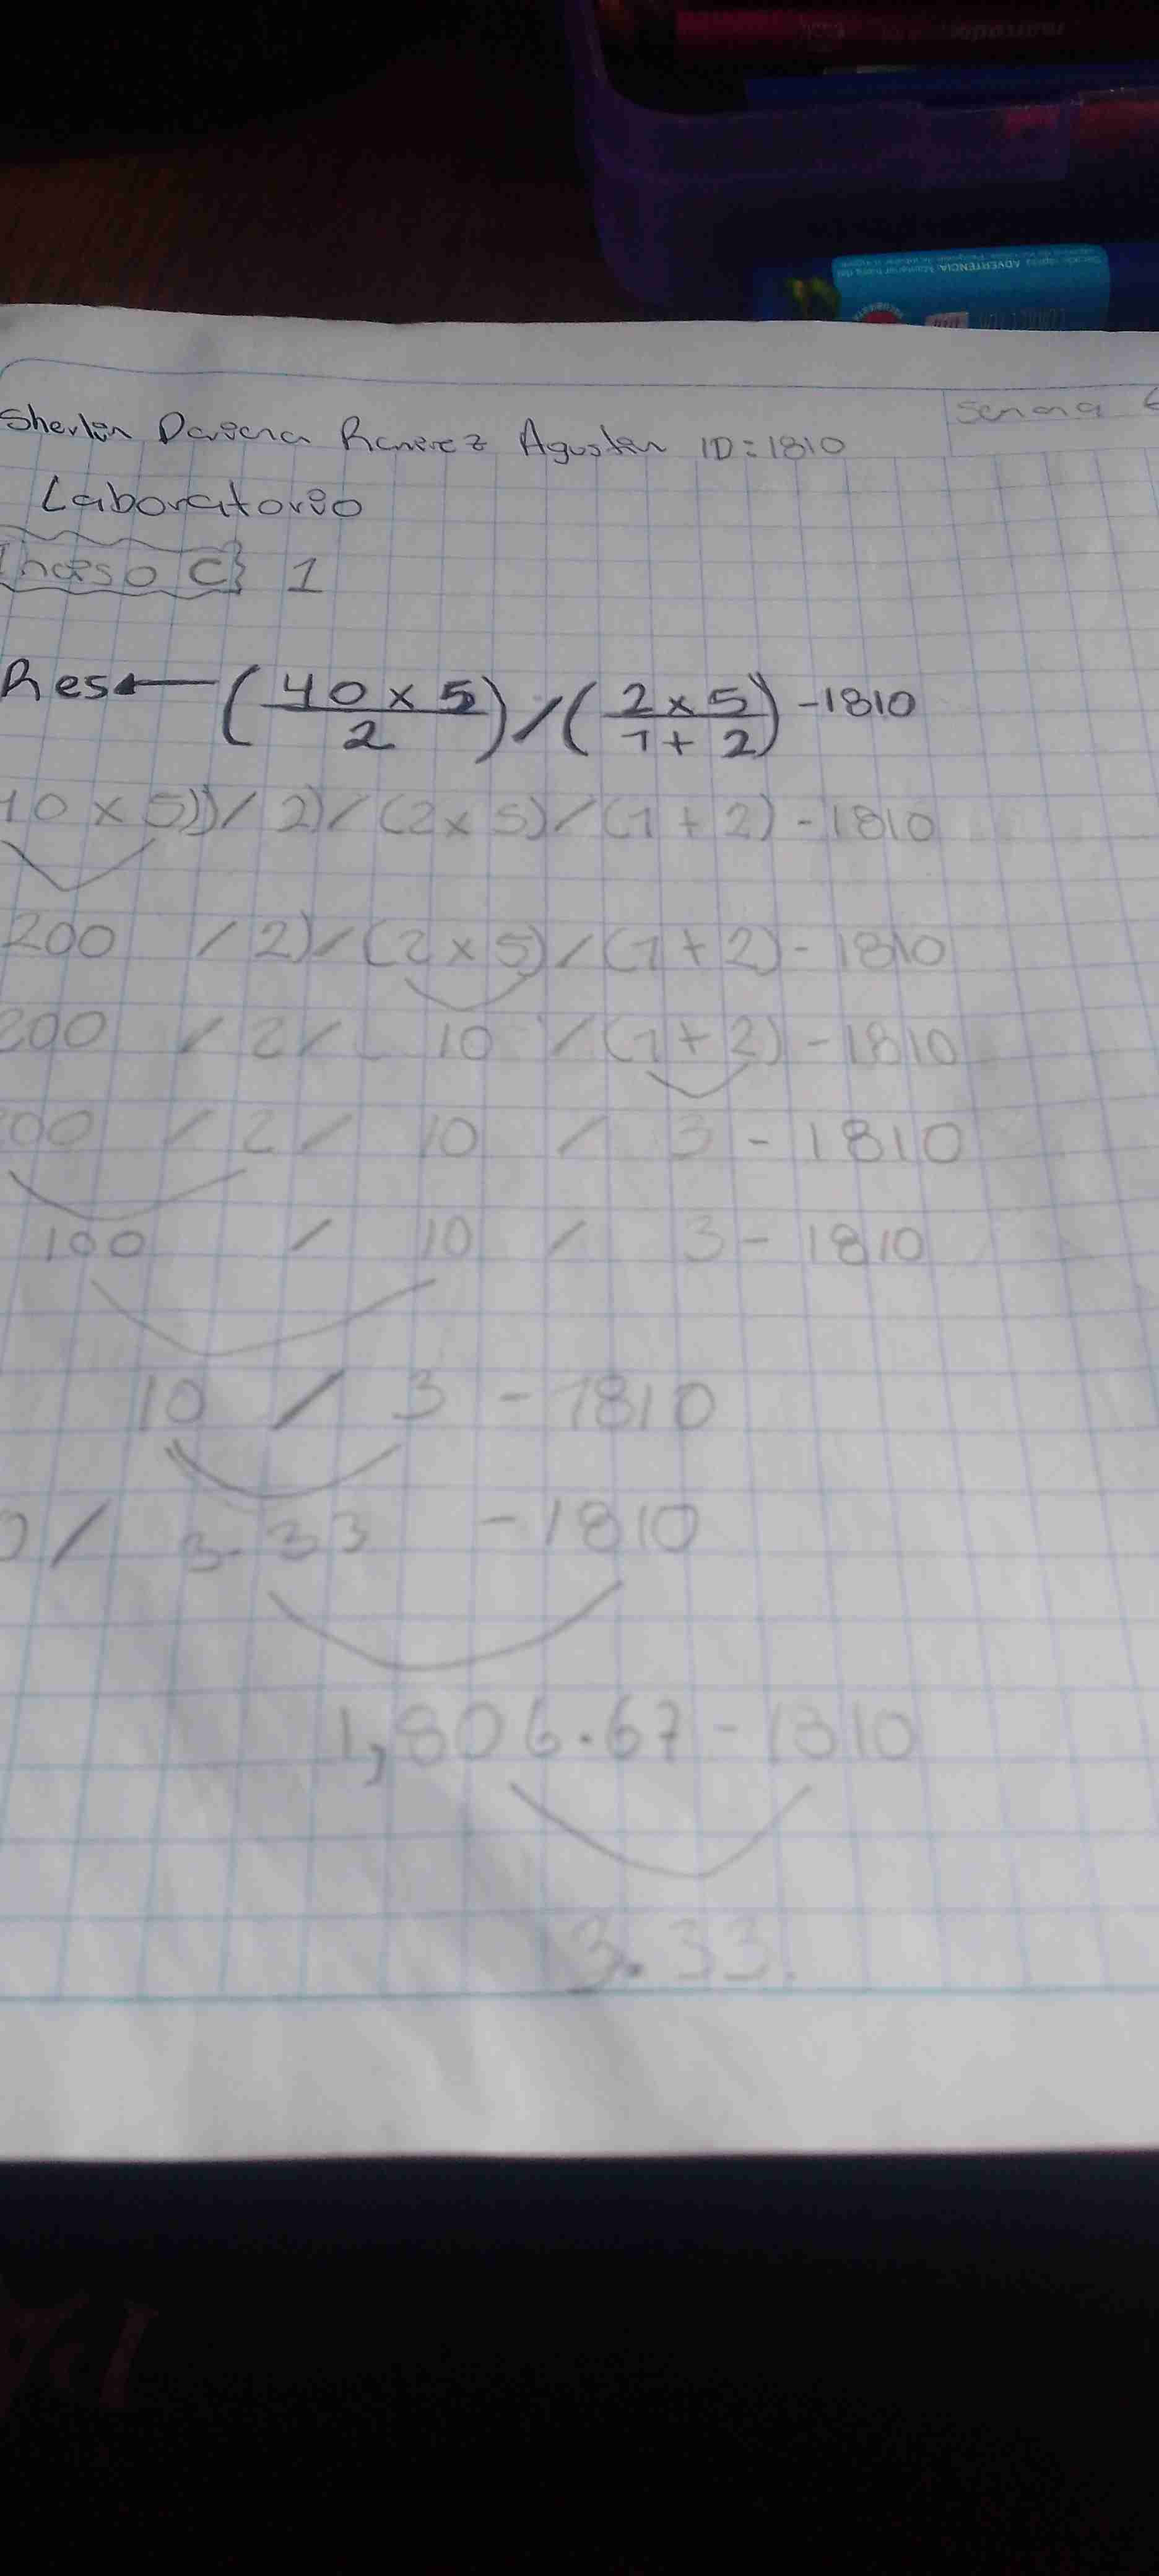 ADVERTENCIA:
Semana 6
Sherlin Dariana Ramirez Agustin ID=1810
Laboratorio
Inciso C} 1
Res ← (40 x 5 / 2) / (2 x 5 / 1 + 2) - 1810
40 x 5)) / 2) / (2 x 5) / (1 + 2) - 1810
200 / 2) / (2 x 5) / (1 + 2) - 1810
200 / 2 / 10 / (1 + 2) - 1810
200 / 2 / 10 / 3 - 1810
100 / 10 / 3 - 1810
10 / 3 - 1810
0 / 3.33 - 1810
1,806.67 - 1810
3.33